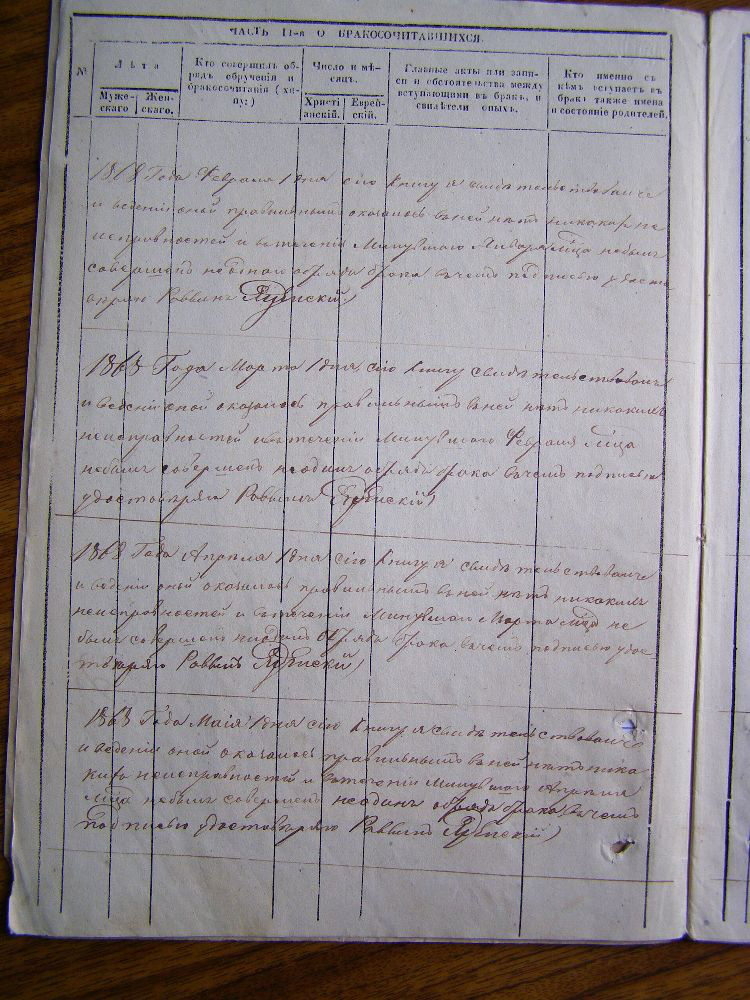 ЧАСТЬ II-я О БРАКОСОЧИТАВШИХСЯ.
№
Лѣта
Муже-
скаго
Жен-
скаго.
Кто совершилъ об-
рядъ обрученія и
бракосочитанія (хи-
пу:)
Число и мѣ-
сяцъ.
Христі-
анскій.
Еврей-
скій.
Главные акты или запи-
си и обстоятельства между
вступающими въ бракъ, и
свидѣтели оныхъ.
Кто именно съ
кѣмъ вступаетъ въ
бракъ также имена
и состояніе родителей.
1868 Года Февраля 1 дня сію Книгу я свидѣтельствовалъ
и веденіи оной правильнымъ оказалось въ ней нѣтъ никакихъ не
исправностей и въ теченіи Минувшаго Января М-ца небылъ
совершенъ неодного обряда брака въ чемъ подписью удосто
вѣряю Раввинъ
1868 Года Марта 1 дня, сію Книгу свидѣтельствовалъ
и веденіи оной оказалось правильнымъ въ ней нѣтъ никакихъ
неисправностей и въ теченіи Минувшаго Февраля М-ца
небылъ совершенъ неодинъ обрядъ брака въ чемъ подписью
удостовѣряю Раввинъ
1868 Года Апрѣля 1 дня сію Книгу я свидѣтельствовалъ
и веденіи оной оказалось правильнымъ въ ней нѣтъ никакихъ
неисправностей и въ теченіи Минувшаго Марта М-ца не
былъ совершенъ ниодинъ обрядъ брака въ чемъ подписью удос-
товѣряю Раввинъ
1868 Года Маія 1 дня сію Книгу я свидѣтельствовалъ
и веденіи оной оказалось правильнымъ въ ней нѣтъ ника
кихъ неисправностей и въ теченіи Минувшаго Апрѣля
М-ца небылъ совершенъ неодинъ обрядъ брака, въ чемъ
подписью удостовѣряю Раввинъ